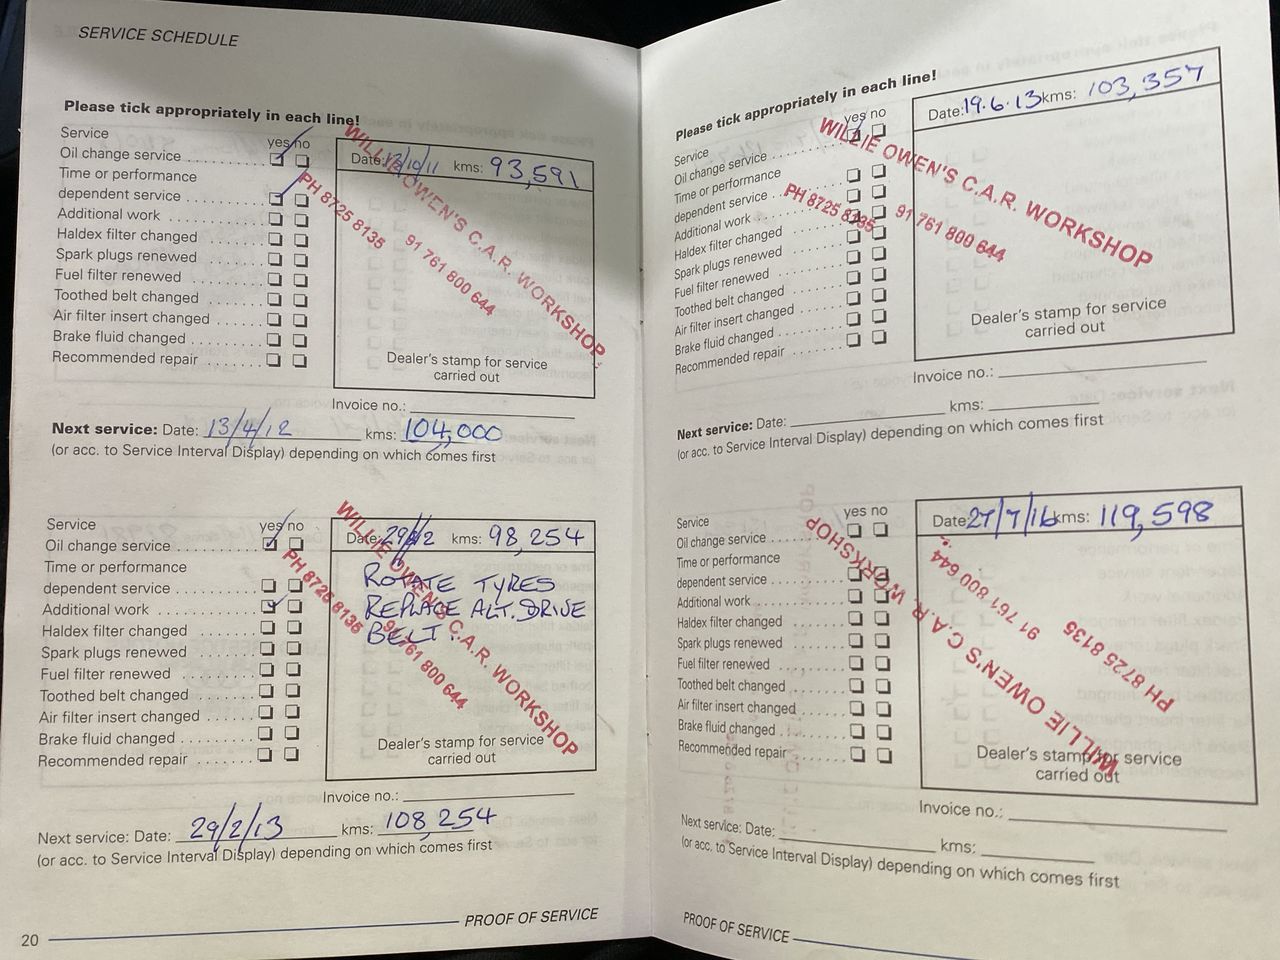 SERVICE SCHEDULE
Please tick appropriately in each line!
Service yes no
Oil change service
Time or performance
dependent service
Additional work
Haldex filter changed
Spark plugs renewed
Fuel filter renewed
Toothed belt changed
Air filter insert changed
Brake fluid changed
Recommended repair
Date: 13/10/11 kms: 93,591
WILLIE OWEN'S C.A.R. WORKSHOP
PH 8725 8135 91 761 800 644
Dealer's stamp for service
carried out
Invoice no.:
Next service: Date: 13/4/12 kms: 104,000
(or acc. to Service Interval Display) depending on which comes first
Service yes no
Oil change service
Time or performance
dependent service
Additional work
Haldex filter changed
Spark plugs renewed
Fuel filter renewed
Toothed belt changed
Air filter insert changed
Brake fluid changed
Recommended repair
Date: kms: 98,254
ROTATE TYRES
REPLACE ALT. DRIVE
BELT.
WILLIE OWEN'S C.A.R. WORKSHOP
PH 8725 8135 91 761 800 644
Dealer's stamp for service
carried out
Invoice no.:
Next service: Date: 29/2/13 kms: 108,254
(or acc. to Service Interval Display) depending on which comes first
PROOF OF SERVICE
20
Please tick appropriately in each line!
Service yes no
Oil change service
Time or performance
dependent service
Additional work
Haldex filter changed
Spark plugs renewed
Fuel filter renewed
Toothed belt changed
Air filter insert changed
Brake fluid changed
Recommended repair
Date: 19.6.13 kms: 103,357
WILLIE OWEN'S C.A.R. WORKSHOP
PH 8725 8135 91 761 800 644
Dealer's stamp for service
carried out
Invoice no.:
Next service: Date: kms:
(or acc. to Service Interval Display) depending on which comes first
Service yes no
Oil change service
Time or performance
dependent service
Additional work
Haldex filter changed
Spark plugs renewed
Fuel filter renewed
Toothed belt changed
Air filter insert changed
Brake fluid changed
Recommended repair
Date: 27/7/16 kms: 119,598
WILLIE OWEN'S C.A.R. WORKSHOP
PH 8725 8135 91 761 800 644
Dealer's stamp for service
carried out
Invoice no.:
Next service: Date: kms:
(or acc. to Service Interval Display) depending on which comes first
PROOF OF SERVICE